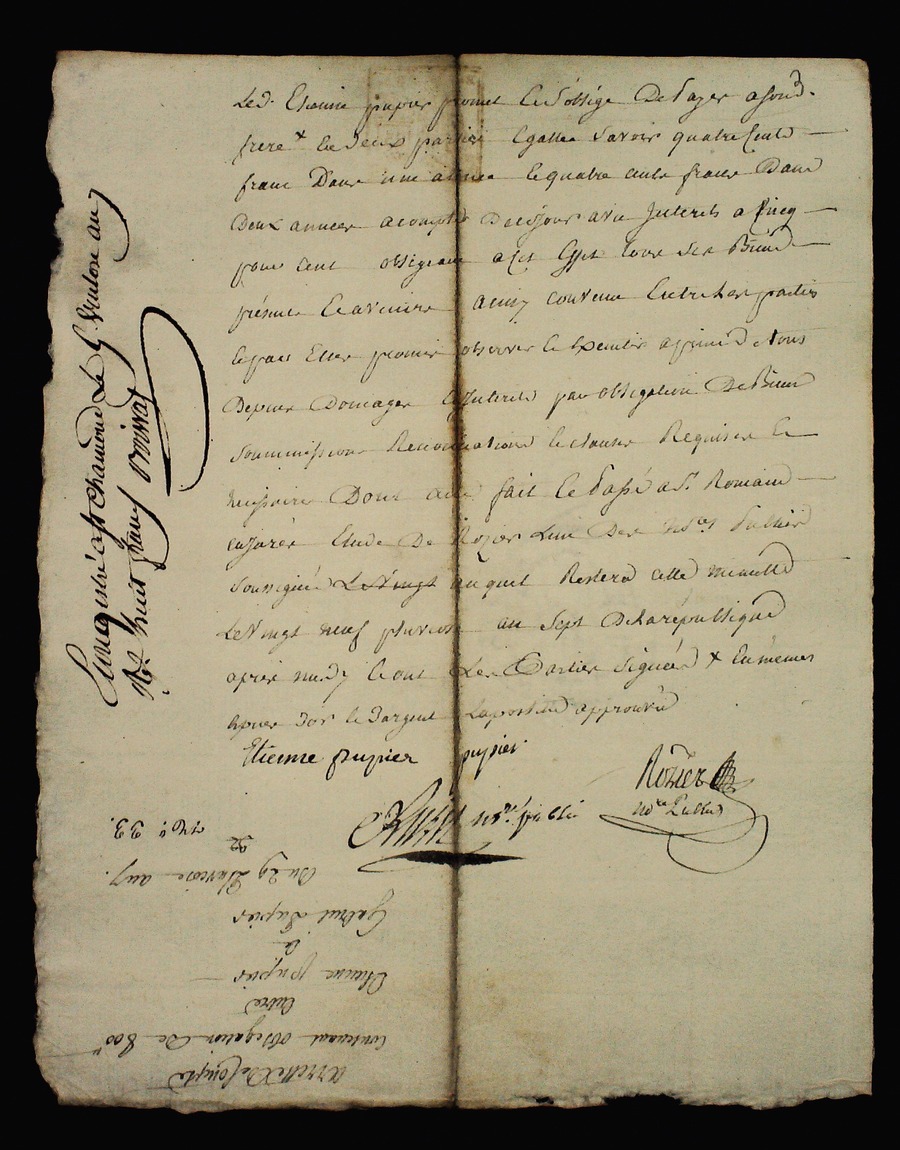 Led. Etienne pupier promet et s'oblige De payer a sond.
frere + En Deux parties Egalles Savoir quatre Cents
franc Dans une année et quatre cents francs Dans
Deux années a compter De ce jour avec Interets a Cinq
pour cent obligeant a cet effet tous ses Biens
présents et avenirs ainsy convenu Entre les parties
et par Elles promis observer et a peine de tous
Depens Domages Interets par obligation De Biens
soummissions Renonciations et clauses Requises et
necessaire Dont acte fait et Passé a St. Romain
en jarés Etude De Rozier L'un Des no.res Publics
soussignés Le Vingt auquel Restera cette minutte
Le Vingt neuf pluviose an sept De la république
apres midy et ont Les Parties signées + En mêmes
Especes D'or et D'argent apostille approuvé
Etienne pupier pupier
Rozier
no.re Public
no.re public
Enregistré a St. Chamond Le ventose an 7
Rç. huit francs
Arretté De Compte
Contenant obligation De 800
Entre
Etienne pupier
&
Gabriel Pupier
Du 29 Pluviose an 7.